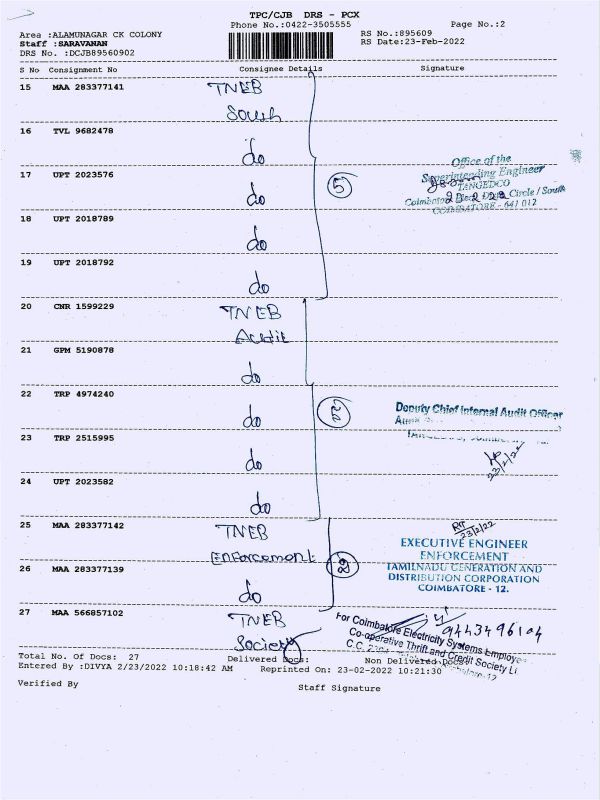 TPC/CJB DRS - PCX
Phone No.:0422-3505555 Page No.:2
Area :ALAMUNAGAR CK COLONY RS No.:895609
Staff :SARAVANAN RS Date:23-Feb-2022
DRS No. :DCJB89560902
S No Consignment No Consignee Details Signature
15 MAA 283377141 TNEB
South
16 TVL 9682478
do
17 UPT 2023576
do
18 UPT 2018789
do
19 UPT 2018792
do
5
Office of the
Superintending Engineer
TANGEDCO
Circle / South
COIMBATORE - 641 012
20 CNR 1599229 TNEB
Audit
21 GPM 5190878
do
22 TRP 4974240
do
23 TRP 2515995
do
24 UPT 2023582
do
Deputy Chief Internal Audit Officer
23/2/22
25 MAA 283377142 TNEB
Enforcement
26 MAA 283377139
do
23/2/22
EXECUTIVE ENGINEER
ENFORCEMENT
TAMILNADU GENERATION AND
DISTRIBUTION CORPORATION
COIMBATORE - 12.
27 MAA 566857102 TNEB
Society
9443496104
For Coimbatore Electricity Systems Employe
Co-operative Thrift and Credit Society Li
Total No. Of Docs: 27 Delivered Docs: Non Delivered Docs:
Entered By :DIVYA 2/23/2022 10:18:42 AM Reprinted On: 23-02-2022 10:21:30
Verified By Staff Signature